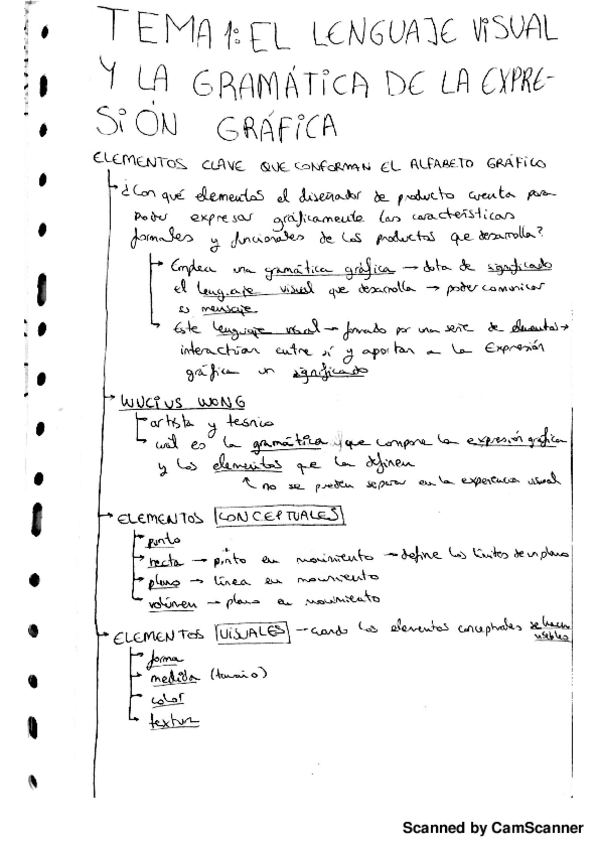 TEMA 1: EL LENGUAJE VISUAL
Y LA GRAMÁTICA DE LA EXPRE-
SIÓN GRÁFICA
ELEMENTOS CLAVE QUE CONFORMAN EL ALFABETO GRÁFICO
¿Con qué elementos el diseñador de producto cuenta para
poder expresar gráficamente las características
formales y funcionales de los productos que desarrolla?
Emplea una gramática gráfica → dota de significado
el lenguaje visual que desarrolla → poder comunicar
mensaje
Este lenguaje visual → formado por una serie de elementos →
interactúan entre sí y aportan a la Expresión
gráfica un significado
WUCIUS WONG
artista y teórico
cuál es la gramática que compone la expresión gráfica
y los elementos que la definen
↑ no se pueden separar en la experiencia visual
ELEMENTOS CONCEPTUALES
punto
recta → punto en movimiento → define los límites de un plano
plano → línea en movimiento
volúmen → plano en movimiento
ELEMENTOS VISUALES → cuando los elementos conceptuales se hacen
visibles
forma
medida (tamaño)
color
textura
Scanned by CamScanner